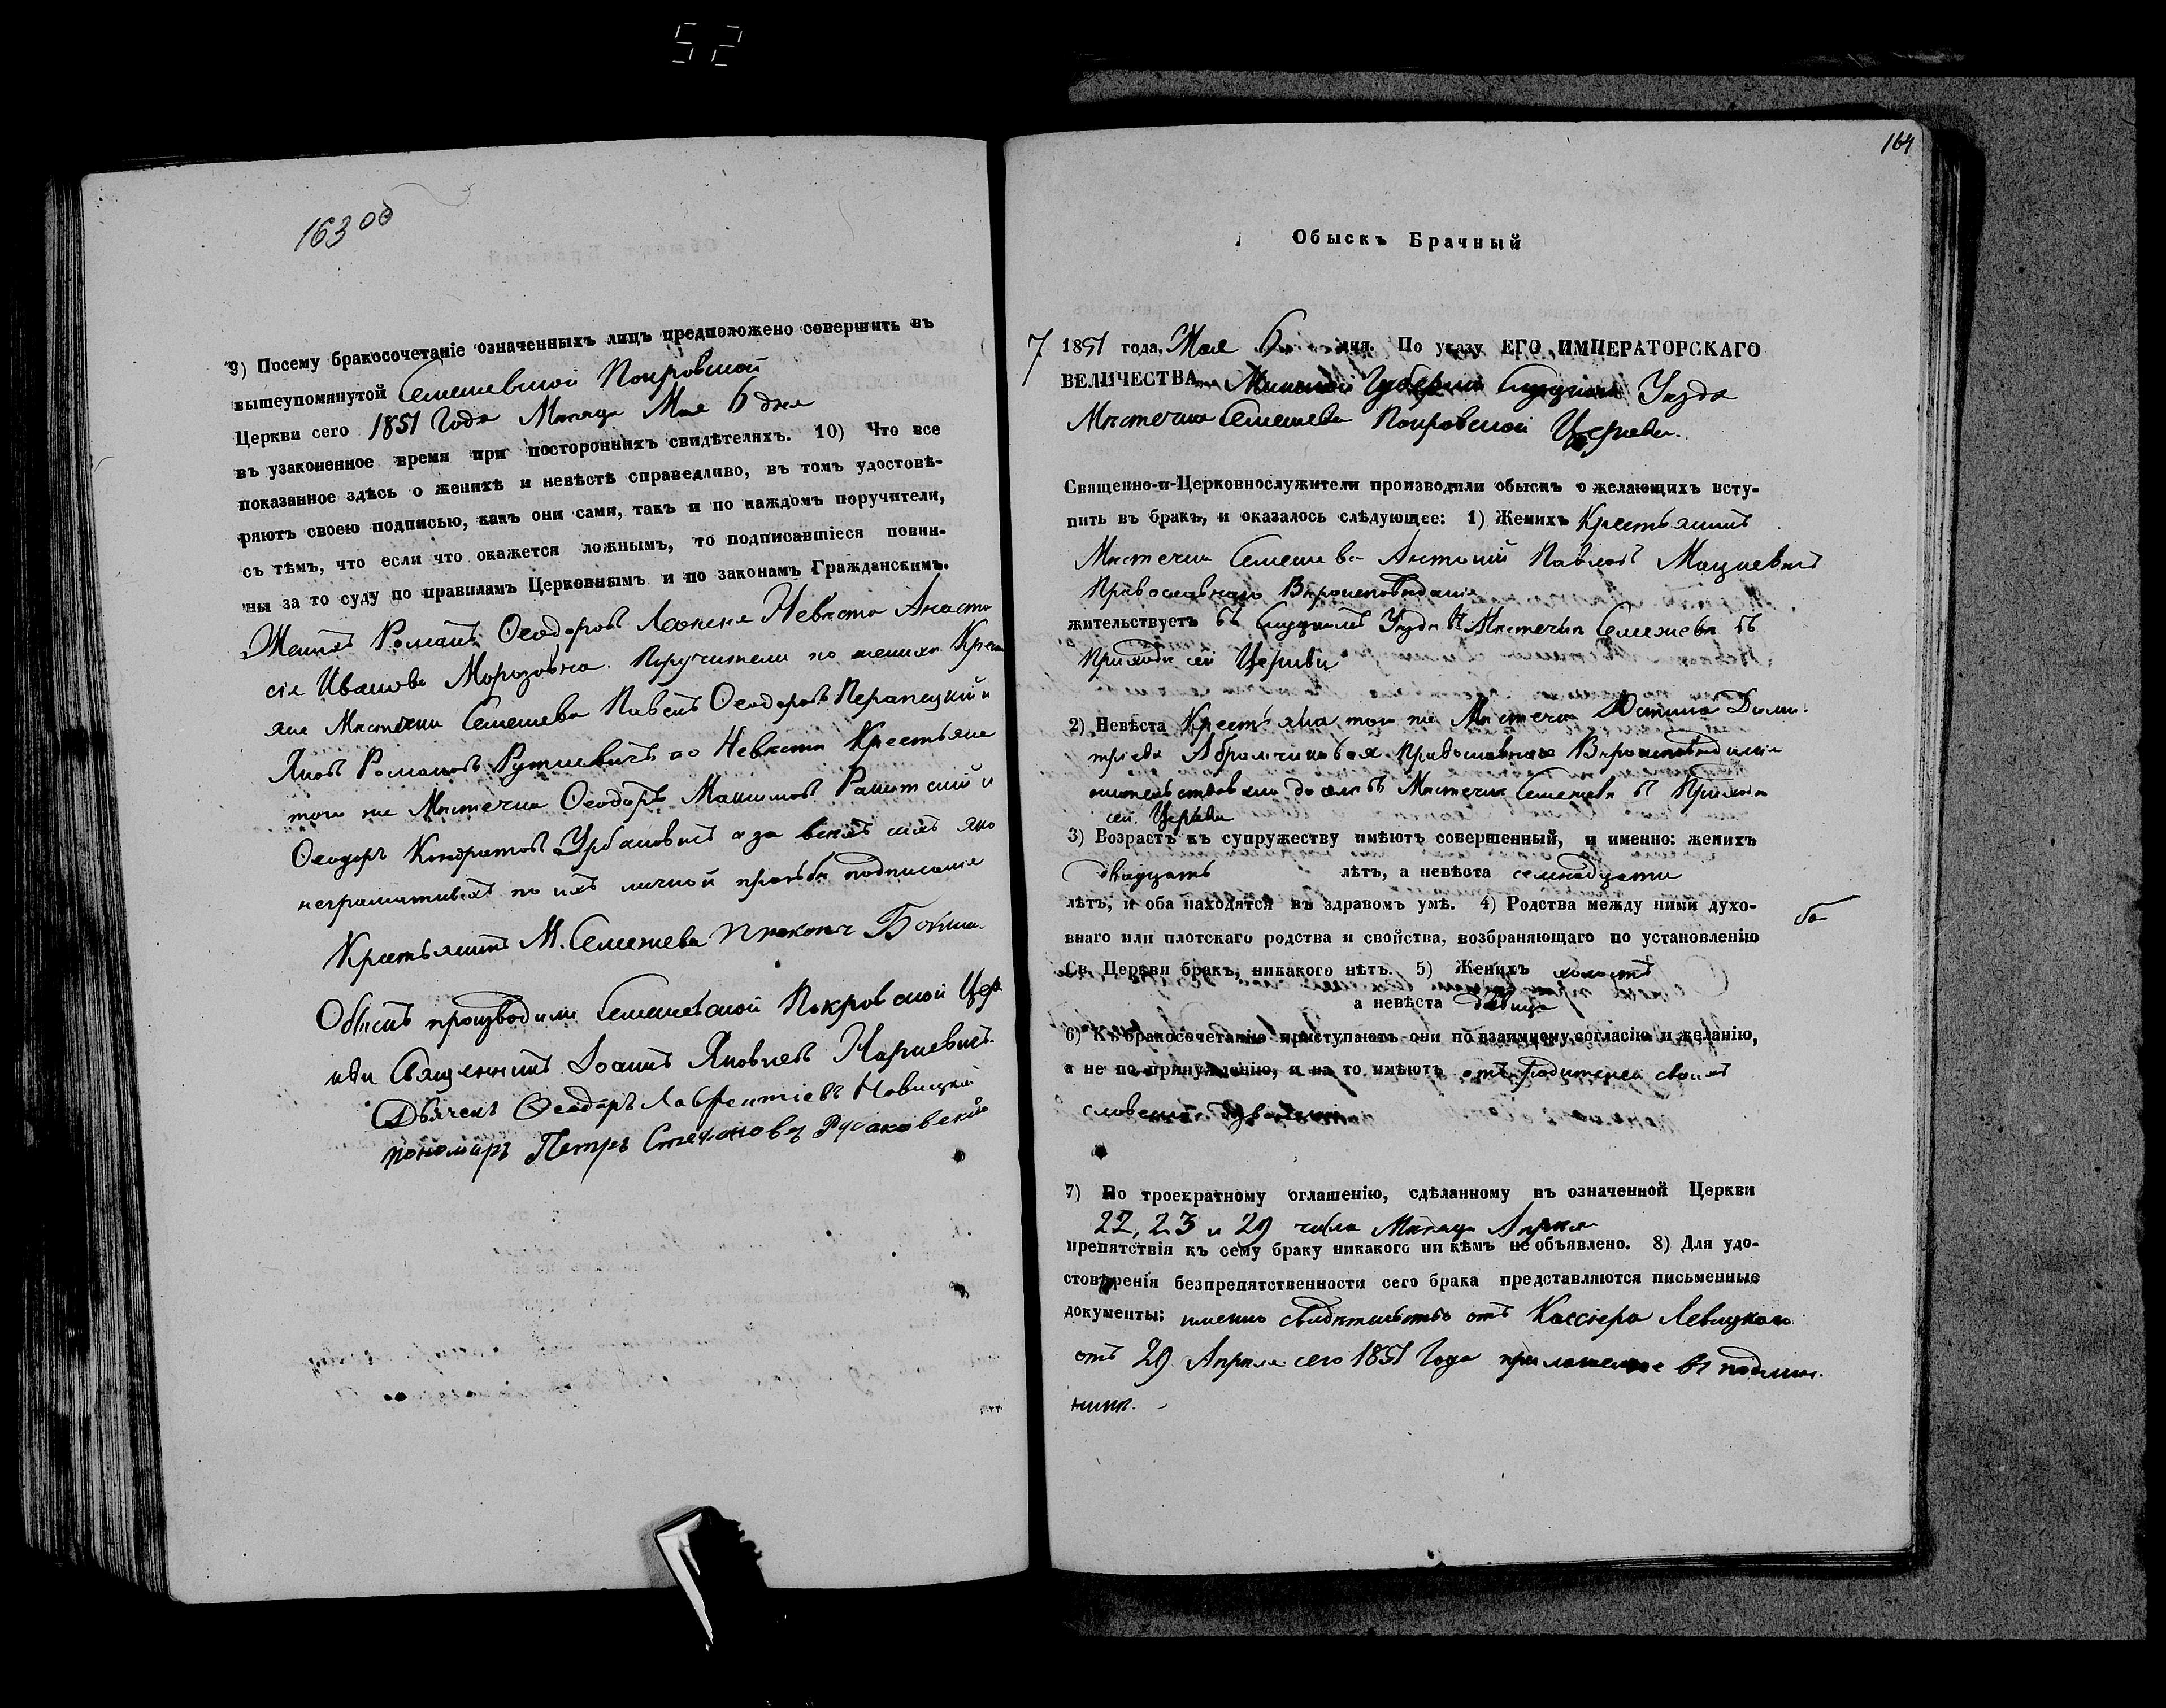 52
163 об
9) Посему бракосочетаніе означенныхъ лицъ предположено совершить въ
вышеупомянутой Семежевской Покровской
Церкви сего 1851 Года Месяца Мая 6 дня
въ узаконенное время при постороннихъ свидѣтеляхъ. 10) Что все
показанное здѣсь о женихѣ и невѣстѣ справедливо, въ томъ удостовѣ-
ряютъ своею подписью, какъ они сами, такъ и по каждомъ поручители,
съ тѣмъ, что если что окажется ложнымъ, то подписавшіеся повин-
ны за то суду по правиламъ Церковнымъ и по законамъ Гражданскимъ.
Женихъ Романъ Ѳеодоровъ Невѣста Анаста
сія Иванова Морозовна. Поручители по женихѣ Кресть
яне Мѣстечка Семежева Ѳеодоровъ и
Яковъ Романовъ Руткевичъ по Невѣстѣ Крестьяне
того же Мѣстечка Ѳеодоръ Максимовъ и
Ѳеодоръ Кондратовъ Урбановичъ а за всехъ сихъ яко
неграматныхъ по ихъ личной прозьбѣ подписалъ
Крестьянинъ М. Семежева
Обыскъ производили Семежевской Покровской Цер
кви Священникъ Іоаннъ Яковлевъ
Дьячекъ Ѳеодоръ Лаврентіевъ Новицкій
пономаръ Петръ Стефановъ Русаковскій
164
Обыскъ Брачный
7 1851 года, Мая 6 дня. По указу ЕГО ИМПЕРАТОРСКАГО
ВЕЛИЧЕСТВА, Минской Губерніи Слуцкаго Уезда
Мѣстечка Семежева Покровской Церкви.
Священно-и-Церковнослужители производили обыскъ о желающихъ всту-
пить въ бракъ, и оказалось слѣдующее: 1) Женихъ Крестьянинъ
Мѣстечка Семежева Антоній Павловъ Мацкевичъ
Православнаго Вѣроисповѣданія
жительствуетъ въ Слуцкомъ Уездѣ въ Мѣстечкѣ Семежевѣ въ
Приходѣ сей Церкви
2) Невѣста Крестьянка того же Мѣстечка Юстина Дими-
тріева Православнаго Вѣроисповѣданія
жительствовала до селѣ въ Мѣстечкѣ Семежевѣ въ Приходѣ
сей Церкви
3) Возрастъ къ супружеству имѣютъ совершенный, и именно: женихъ
двадцать лѣтъ, а невѣста семнадцати
лѣтъ, и оба находятся въ здравомъ умѣ. 4) Родства между ними духо-
внаго или плотскаго родства и свойства, возбраняющаго по установленію
Св. Церкви бракъ, никакого нѣтъ. 5) Женихъ холостъ
а невѣста дѣвица
6) Къ бракосочетанію приступаютъ они по взаимному согласію и желанію,
а не по принужденію, и на то имѣютъ отъ Родителей своихъ
словесное дозволеніе
7) По троекратному оглашенію, сдѣланному въ означенной Церкви
22, 23 и 29 числа Месяца Апреля
препятствія къ сему браку никакого ни кѣмъ не объявлено. 8) Для удо-
стовѣренія безпрепятственности сего брака представляются письменные
документы: именно свидѣтельство отъ Кассіера Левицкаго
отъ 29 Апреля сего 1851 Года приложенное въ подлин-
никѣ.